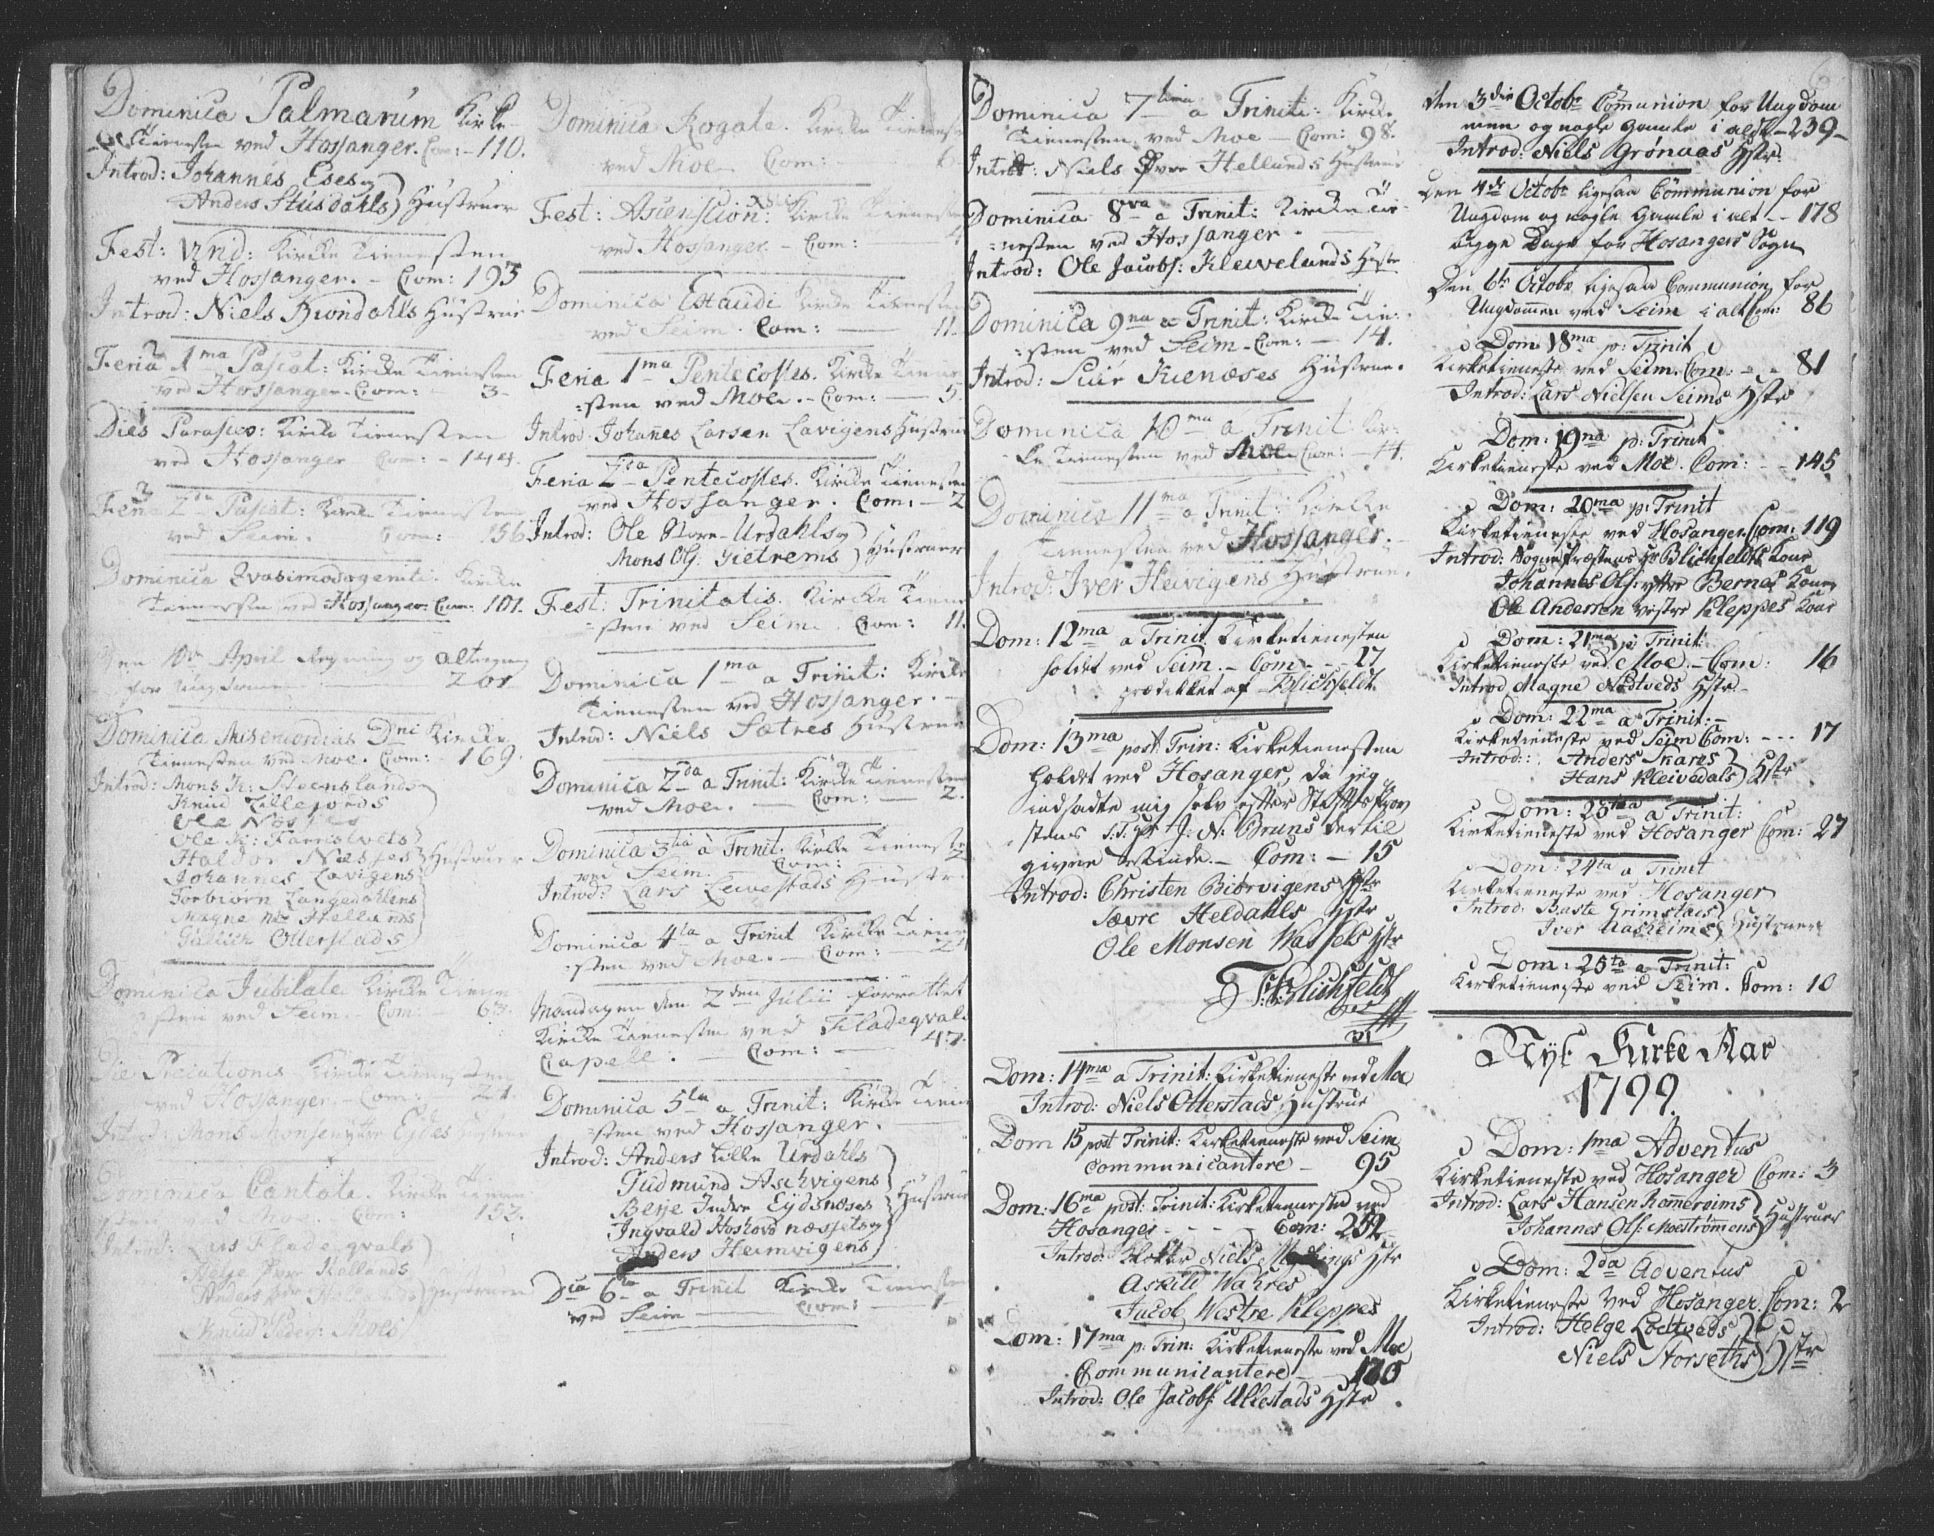 Dominica Palmarum Kirke
Tienesten ved Hossanger. Com: - 110.
Introd: Johannes Eses og
Anders Stusdahls Hustruer
Fest: Virid: Kircke Tienesten
ved Hossanger. - Com: 193
Introd: Niels Biondahls Hustrue
Feria 1ma Pascat: Kircke Tienesten
ved Hossanger - Com: - 3.
Dies Parasceo: Kircke Tienesten
ved Hossanger Com: - 144.
Feria 2da Pascat: Kircke Tienesten
ved Seim. Com: 156
Dominica Qvasimodogeniti. Kircke
Tienesten ved Hossanger. Com: 101.
Den April og altergang
for Ungdommen 201
Dominica Misericordias Dni Kircke
Tienesten ved Moe. Com: - 169.
Introd: Mons K: Steenslands
Knud Tillequeds
Ole Nöstes
Ole K: Fannistveits
Haldor Næsses Hustruer
Johannes Lavigens
Torbiörn Langedahlens
Magne Hellands
Gullich Otterstads
Dominica Jubilate Kircke Tiene
sten ved Seim. - Com: - 63.
Die Preciationis Kircke Tienesten
ved Hossanger. - Com: - 21.
Introd: Mons Monsen Eydes Hustrue
Dominica Cantate. Kircke Tiene
sten ved Moe. Com: 152.
Introd: Lars Fladeqvals
Helje Øvre Hellands
Anders Hustruer
Knud Peder: Moes
Dominica Rogate. Kircke Tienesten
ved Moe Com:
Fest: Ascenscion: Kircke Tienesten
ved Hossanger. - Com: 4
Dominica Exaudi Kircke Tienesten
ved Seim. Com: 11.
Feria 1ma Pentecostes. Kircke Tiene
sten ved Moe. - Com: - 5.
Introd: Johannes Larsen Lavigens Hustrue
Feria 2da Pentecostes. Kircke Tienesten
ved Hossanger. Com: - 2
Introd: Ole Store-Urdahls og
Mons Ols: Tietrems Hustruer
Fest: Trinitatis. Kircke Tiene
sten ved Seim. Com: 11.
Dominica 1ma a Trinit: Kircke
Tienesten ved Hossanger.
Introd: Niels Sætres Hustrue
Dominica 2da a Trinit: Kircke Tienesten
ved Moe. - Com: - 2.
Dominica 3tia a Trinit. Kircke Tienesten
ved Seim. Com: 2
Introd: Lars Levestads Hustr.
Dominica 4ta a Trinit Kircke Tiene
sten ved Moe. - Com: - 21
Mandagen den 2den Julii forrettet
Kircke Tienesten ved Fladeqvals
Capell. - Com: - 47.
Dominica 5ta a Trinit: Kircke Tiene
sten ved Hossanger.
Introd: Anders Lille Urdahls
Gudmund Aschvigens
Berje Indre Eydsnæses Hustrue
Ingvald Hoskovs næssets og
Anders Heimvigens
Dca 6ta a Trinit Kircke Tienesten
ved Seim Com: 1.
Dominica 7tima a Trinit: Kircke
Tienesten ved Moe - Com: 98.
Introd: Niels Øvre Hellunds Hustrue
Dominica 8va a Trinit: Kircke Tie
nesten ved Hossanger.
Introd: Ole Jacobs: Klewelands Hustr
Dominica 9na a Trinit: Kircke Tie
sten ved Seim - Com: - 14.
Introd: Siur Kuenæses Hustrue.
Dominica 10ma a Trinit Kir
ke Tienesten ved Moe Com: - 4.
Dominica 11ma a Trinit: Kircke
Tienesten ved Hossanger.
Introd: Iver Heivigens Hustrue.
Dom: 12ma a Trinit. Kirketienesten
holdet ved Seim. - Com - - 27
prædikket af Blichfeldt.
Dom: 13ma post Trin: Kirketienesten
holdet ved Hosanger, da jeg
indsadte mig selv efter Stiftsprov
stens S.T. Hr J: N: Bruns dertil
givne Tilladelse. - Com: - 15
Introd: Christen Biörvigens Hstr
Sævre Heldahls Hstr
Ole Monsen Wassels Hstr
Blichfeldt
Dom: 14ma a Trinit: Kirketieneste ved Moe
Introd: Niels Otterstads Hustrue
Dom 15 post Trinit: Kirketieneste ved Seim
Communicantere - 95
Dom: 16ma post: Trinit: Kirketieneste ved
Hosanger - - - Com: 252
Introd: Klokker Niels Hstr
Askild Wahres
Jacob Westre Kleppes
Dom: 17ma p: Trin: Kirketieneste ved Moe
Communicantere - 170
Introd: Ole Jacobs: Ullestads Hstr
Den 3die Octobr Communion for Ungdom
men og nogle Gamle i alt - 239 -
Introd: Niels Grønaas Hstr.
Den 4de Octobr ligesaa Communion for
Ungdom og nogle Gamle i alt - 178
begge Dage for Hosangers Sogn
Den 6te Octobr ligesaa Communion for
Ungdommen ved Seim i alt Com: 86
Dom: 18ma p: Trinit
Kirketieneste ved Seim. Com: - - 81
Introd: Lars Nielsen Seims Hstr
Dom: 19na p: Trinit
Kirketieneste ved Moe. Com: - - 145
Dom: 20ma p: Trinit
Kirketieneste ved Hosanger. Com: 119
Introd: Sognepræstens Hr Blichfeldts Kone
Johannes Ols: yttre Bernes Kone
Ole Andersen vestre Kleppes Kone
Dom: 21ma p: Trinit:
Kirketieneste ved Moe. - Com: 16
Introd Magne Nødtveds Hstr.
Dom: 22ma a Trinit: -
Kirketieneste ved Seim Com: - - - 17
Introd: Anders Skares
Hans Kleivedals Hstr
Dom: 23tia a Trinit:
Kirketieneste ved Hosanger Com: 27
Dom: 24ta a Trinit
Kirketieneste ved Hosanger
Introd: Baste Grimstads
Iver Aasheims Hustruer
Dom: 25ta a Trinit:
Kirketieneste ved Seim. Com: 10
Nyt Kirke Aar
1799.
Dom: 1ma Adventus
Kirketieneste ved Hosanger Com: 3
Introd: Lars Hansen Rammersims
Johannes Ols: Moestrømens Hustruer
Dom: 2da Adventus
Kirketieneste ved Hosanger. Com: 2
Introd: Helge Loetveds
Niels Storseths Hstr